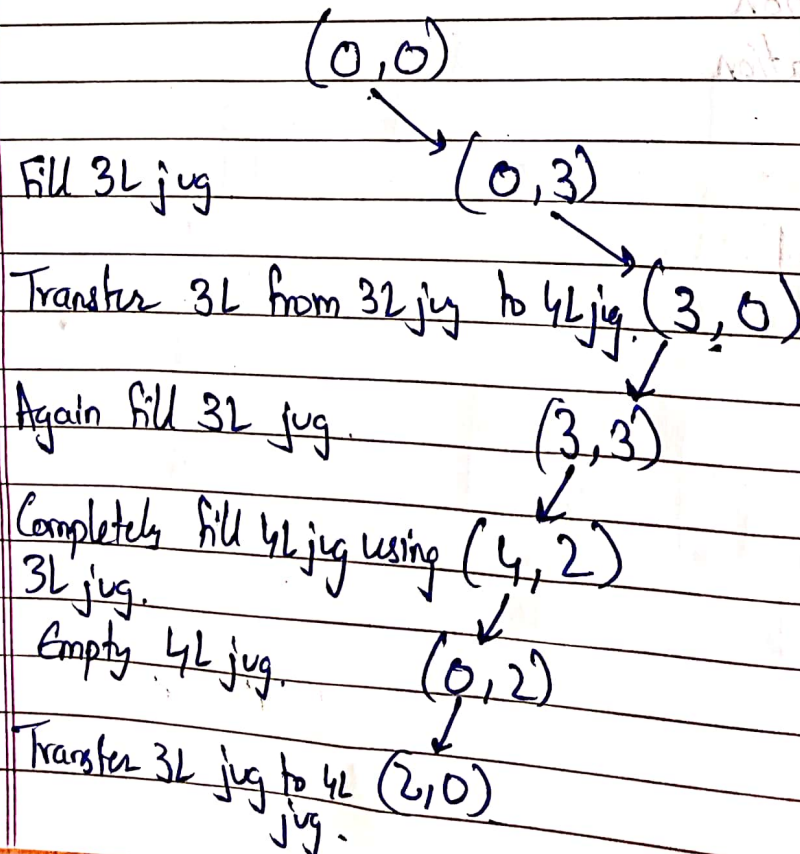 (0,0)
Fill 3L jug (0,3)
Transfer 3L from 3L jug to 4L jug. (3,0)
Again fill 3L jug. (3,3)
Completely fill 4L jug using (4,2)
3L jug.
Empty 4L jug. (0,2)
Transfer 3L jug to 4L (2,0)
jug.